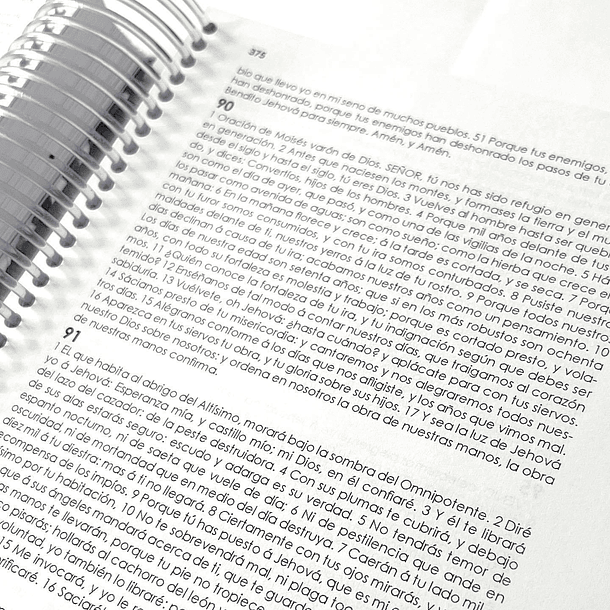 375
bio que llevo yo en mi seno de muchos pueblos. 51 Porque tus enemigos,
han deshonrado, porque tus enemigos han deshonrado los pasos de tu
Bendito Jehová para siempre. Amén, y Amén.
90
1 Oración de Moisés varón de Dios. SEÑOR, tú nos has sido refugio en gener
en generación. 2 Antes que naciesen los montes, y formases la tierra y el mu
desde el siglo y hasta el siglo, tú eres Dios. 3 Vuelves al hombre hasta ser queb
do, y dices: Convertíos, hijos de los hombres. 4 Porque mil años delante de tus
son como el día de ayer, que pasó, y como una de las vigilias de la noche. 5
los pasar como avenida de aguas; son como sueño; como la hierba que crece e
mañana: 6 En la mañana florece y crece; á la tarde es cortada, y se seca. 7 Porq
con tu furor somos consumidos, y con tu ira somos conturbados. 8 Pusiste nuestr
maldades delante de ti, nuestros yerros á la luz de tu rostro. 9 Porque todos nuestro
días declinan á causa de tu ira; acabamos nuestros años como un pensamiento. 10
Los días de nuestra edad son setenta años; que si en los más robustos son ochenta
años, con todo su fortaleza es molestia y trabajo; porque es cortado presto, y vola-
mos. 11 ¿Quién conoce la fortaleza de tu ira, y tu indignación según que debes ser
temido? 12 Enséñanos de tal modo á contar nuestros días, que traigamos al corazón
sabiduría. 13 Vuélvete, oh Jehová: ¿hasta cuándo? y aplácate para con tus siervos.
14 Sácianos presto de tu misericordia: y cantaremos y nos alegraremos todos nues-
tros días. 15 Alégranos conforme á los días que nos afligiste, y los años que vimos mal.
16 Aparezca en tus siervos tu obra, y tu gloria sobre sus hijos. 17 Y sea la luz de Jehová
nuestro Dios sobre nosotros: y ordena en nosotros la obra de nuestras manos, la obra
de nuestras manos confirma.
91
1 EL que habita al abrigo del Altísimo, morará bajo la sombra del Omnipotente. 2 Diré
yo á Jehová: Esperanza mía, y castillo mío; mi Dios, en él confiaré. 3 Y él te librará
del lazo del cazador: de la peste destruidora. 4 Con sus plumas te cubrirá, y debajo
de sus alas estarás seguro: escudo y adarga es su verdad. 5 No tendrás temor de
espanto nocturno, ni de saeta que vuele de día; 6 Ni de pestilencia que ande en
oscuridad, ni de mortandad que en medio del día destruya. 7 Caerán á tu lado mil
diez mil á tu diestra: mas á ti no llegará. 8 Ciertamente con tus ojos mirarás, y
ecompensa de los impíos. 9 Porque tú has puesto á Jehová, que es mi
simo por tu habitación, 10 No te sobrevendrá mal, ni plaga
que á sus ángeles mandará acerca de ti, que te guarde
as manos te llevarán, porque tu pie no tropiece
o pisarás; hollarás al cachorro del león
voluntad, yo también lo libraré:
15 Me invocará, y yo le
rificaré. 16 Saciaré